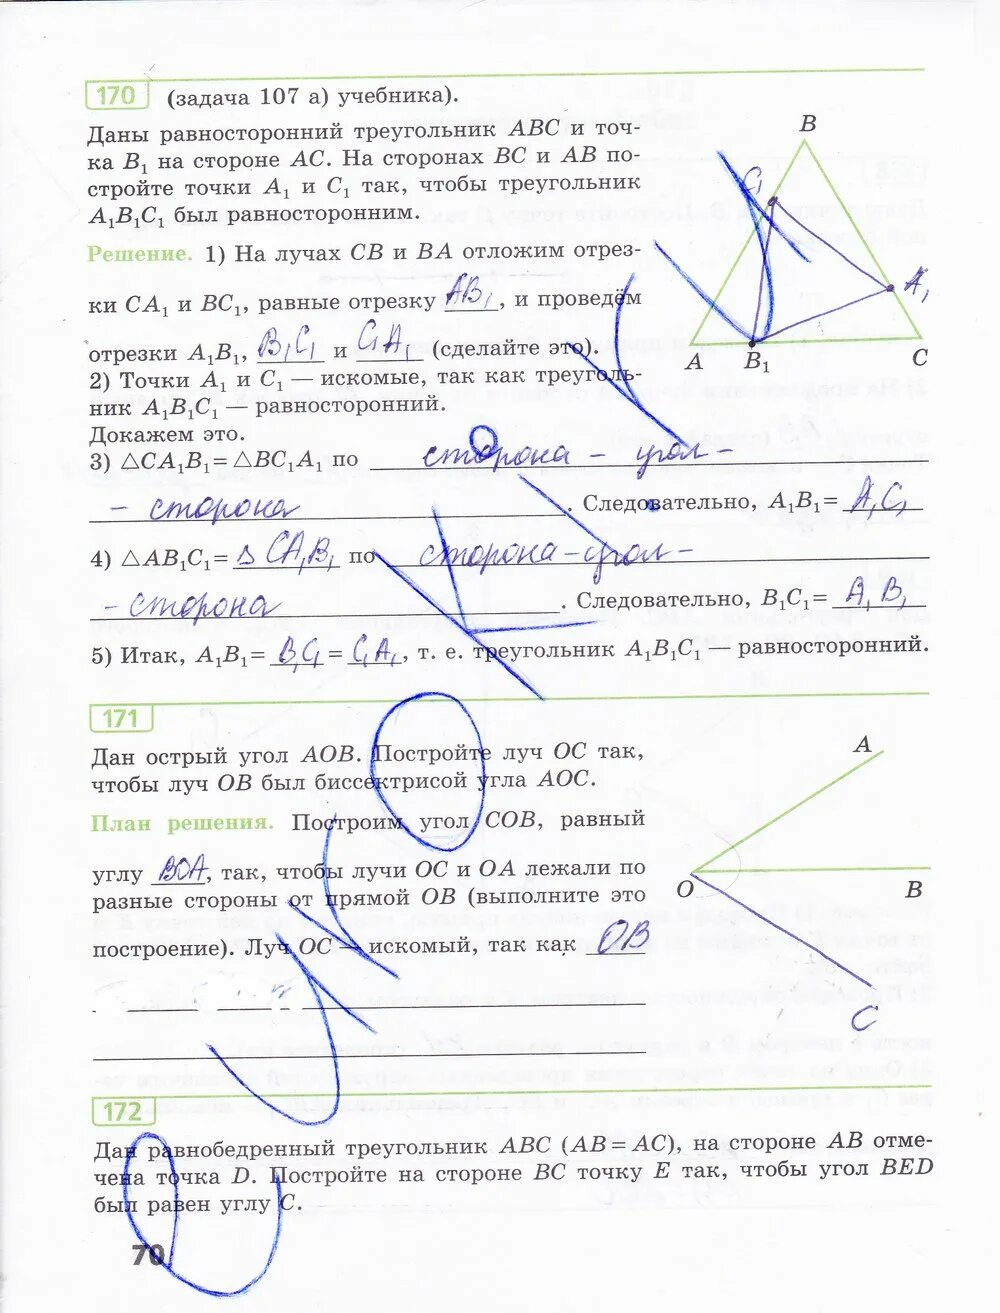 170 (задача 107 а) учебника).
Даны равносторонний треугольник ABC и точ-
ка B₁ на стороне AC. На сторонах BC и AB по-
стройте точки A₁ и C₁ так, чтобы треугольник
A₁B₁C₁ был равносторонним.
Решение. 1) На лучах CB и BA отложим отрез-
ки CA₁ и BC₁, равные отрезку AB₁, и проведём
отрезки A₁B₁, B₁C₁ и C₁A₁ (сделайте это).
2) Точки A₁ и C₁ — искомые, так как треуголь-
ник A₁B₁C₁ — равносторонний.
Докажем это.
B
C₁
A₁
A B₁ C
3) △CA₁B₁ = △BC₁A₁ по сторона - угол -
- сторона. Следовательно, A₁B₁ = A₁C₁
4) △AB₁C₁ = △ CA₁B₁ по сторона - угол -
- сторона. Следовательно, B₁C₁ = A₁B₁
5) Итак, A₁B₁ = B₁C₁ = C₁A₁, т. е. треугольник A₁B₁C₁ — равносторонний.
171
Дан острый угол AOB. Постройте луч OC так,
чтобы луч OB был биссектрисой угла AOC.
План решения. Построим угол COB, равный
углу BOA, так, чтобы лучи OC и OA лежали по
разные стороны от прямой OB (выполните это
построение). Луч OC — искомый, так как OB
A
O B
C
172
Дан равнобедренный треугольник ABC (AB = AC), на стороне AB отме-
чена точка D. Постройте на стороне BC точку E так, чтобы угол BED
был равен углу C.
70